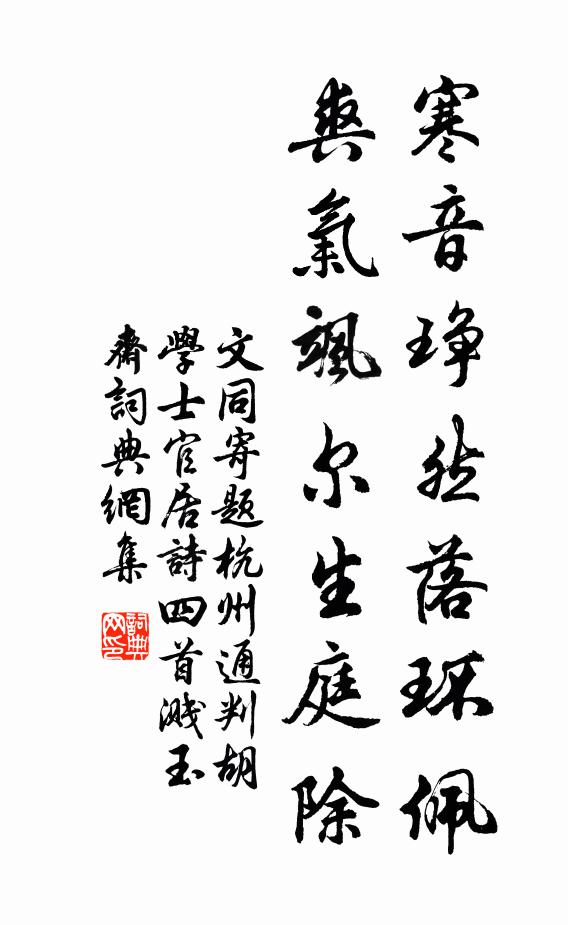 寒音琤然落环佩
爽氣颯尔生庭除
文同寄题杭州通判胡
學士官居詩四首溅玉
齋詞典網集
詞典网印